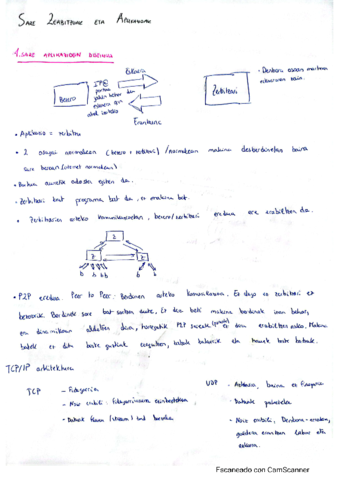 SARE ZERBITZUAK ETA APLIKAZIOAK
1. SARE APLIKAZIOEN OREINUA
Eskaera
Bezero
IP @
portua
jakin behar ditu
eskaera egin
ahal izateko
Zerbitzari
- Denbora osoan martxan
eskaeraren zain.
Erantzuna
• Aplikazio = zerbitzu
• 2 atal normalean (bezero + zerbitzari) /normalean makina desberdinetan baina
sare berean (internet normalean)
• Portua aurretik adosten da.
- Zerbitzari bat programa bat da, ez makina bat.
• Zerbitzarien arteko komunikazioetan, bezero/zerbitzari eredua ere erabiltzen da.
Z
Z Z
b b b b b b
• P2P eredua Peer to Peer: Berdinen arteko komunikazioa. Ez dago ez zerbitzari ez
bezerorik. Berdinak sare bat sortzen dute. Ez dira beti makina berdinak izan behar,
en dinamikoan aldatzen dira, horregatik P2P sareak ez dira erabiltzen asko. Makina
batek ez ditu beste guztiak ezagutzen, batzuk bakarrik eta hauek beste batzuk.
TCP/IP arkitektura
TCP
- Fidagarria
- Non erabili: fidagarritasuna ezinbestekoa
- Datuak fluxu (stream) bat bezala
UDP
- Azkarra, baina ez fidagarria
- Datuak paketeka
- Non erabili, Denbora-errealean,
galdera erantzun labur eta
azkarra.
Escaneado con CamScanner